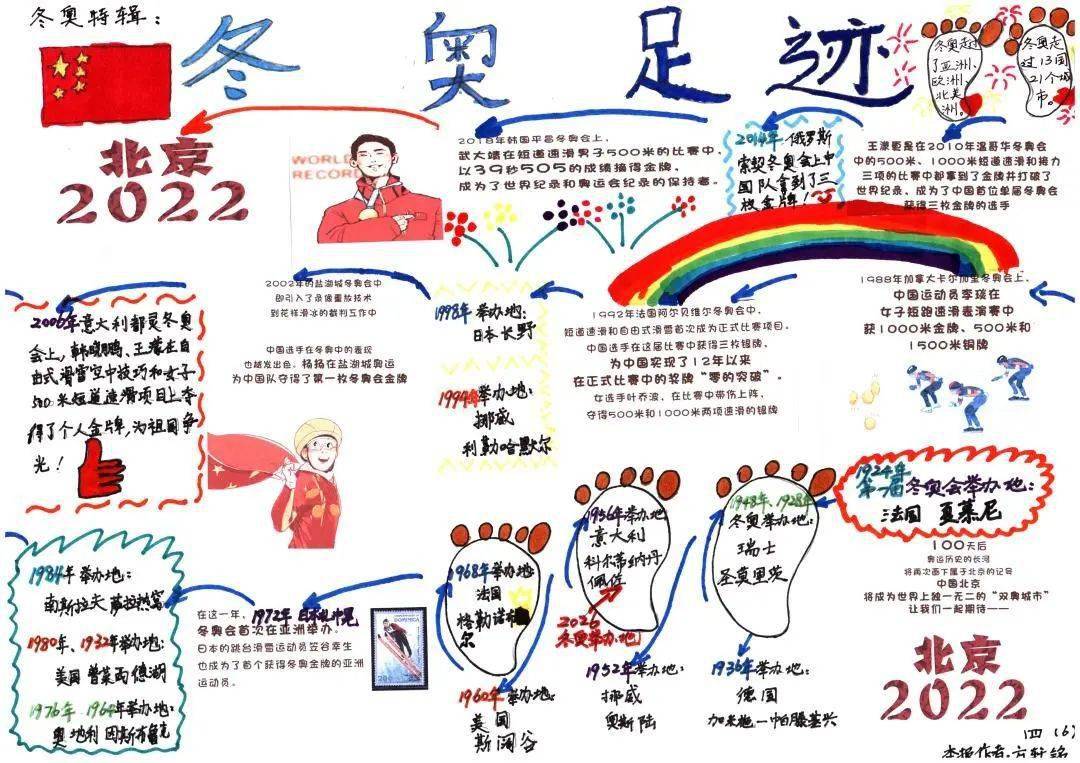 冬奥特辑:
冬奥足迹
冬奥走过
了亚洲、
欧洲、
北美
洲。
冬奥走
过13国
21个城
市。
北京
2022
WORLD
RECORD
2018年韩国平昌冬奥会上,
武大靖在短道速滑男子500米的比赛中,
以39秒505的成绩摘得金牌,
成为了世界纪录和奥运会纪录的保持者。
2014年俄罗斯
索契冬奥会上中
国队拿到了三
枚金牌!
王濛更是在2010年温哥华冬奥会
中的500米、1000米短道速滑和接力
三项的比赛中都拿到了金牌并打破了
世界纪录、成为了中国首位单届冬奥会
获得三枚金牌的选手
2006年意大利都灵冬奥
会上,韩晓鹏、王濛在自
由式滑雪空中技巧和女子
500米短道速滑项目上夺
得了个人金牌,为祖国争
光!
2002年的盐湖城冬奥会中
即引入了录像重放技术
到花样滑冰的裁判工作中
中国选手在冬奥中的表现
也越发出色。杨扬在盐湖城奥运
为中国队夺得了第一枚冬奥会金牌
1998年举办地:
日本 长野
1994年举办地:
挪威
利勒哈默尔
1992年法国阿尔贝维尔冬奥会中,
短道速滑和自由式滑雪首次成为正式比赛项目。
中国选手在这届比赛中获得三枚银牌,
为中国实现了12年以来
在正式比赛中的奖牌“零的突破”。
女选手叶乔波,在比赛中带伤上阵,
夺得500米和1000米两项速滑的银牌
1988年加拿大卡尔加里冬奥会上,
中国运动员李琰在
女子短跑速滑表演赛中
获1000米金牌、500米和
1500米铜牌
1924年
第一届冬奥会举办地:
法国 夏慕尼
1948年、1928年
冬奥举办地:
瑞士
圣莫里茨
1956年举办地
意大利
科尔蒂纳丹
佩佐
2026
冬奥举办地
1968年举办地:
法国
格勒诺布
尔
1984年举办地:
南斯拉夫 萨拉热窝
1980年、1932年举办地:
美国 普莱西德湖
1976年、1964年举办地:
奥地利 因斯布鲁克
在这一年,1972年 日本札幌
冬奥会首次在亚洲举办。
日本的跳台滑雪运动员笠谷幸生
也成为了首个获得冬奥金牌的亚洲
运动员。
DOMINICA
1960年举办地:
美国
斯阔谷
1952年举办地:
挪威
奥斯陆
1936年举办地:
德国
加米施—帕滕基兴
100天后
奥运历史的长河
将再次画下属于北京的记号
中国北京
将成为世界上独一无二的“双奥城市”
让我们一起期待——
北京
2022
四(6)
本报作者:方轩铭